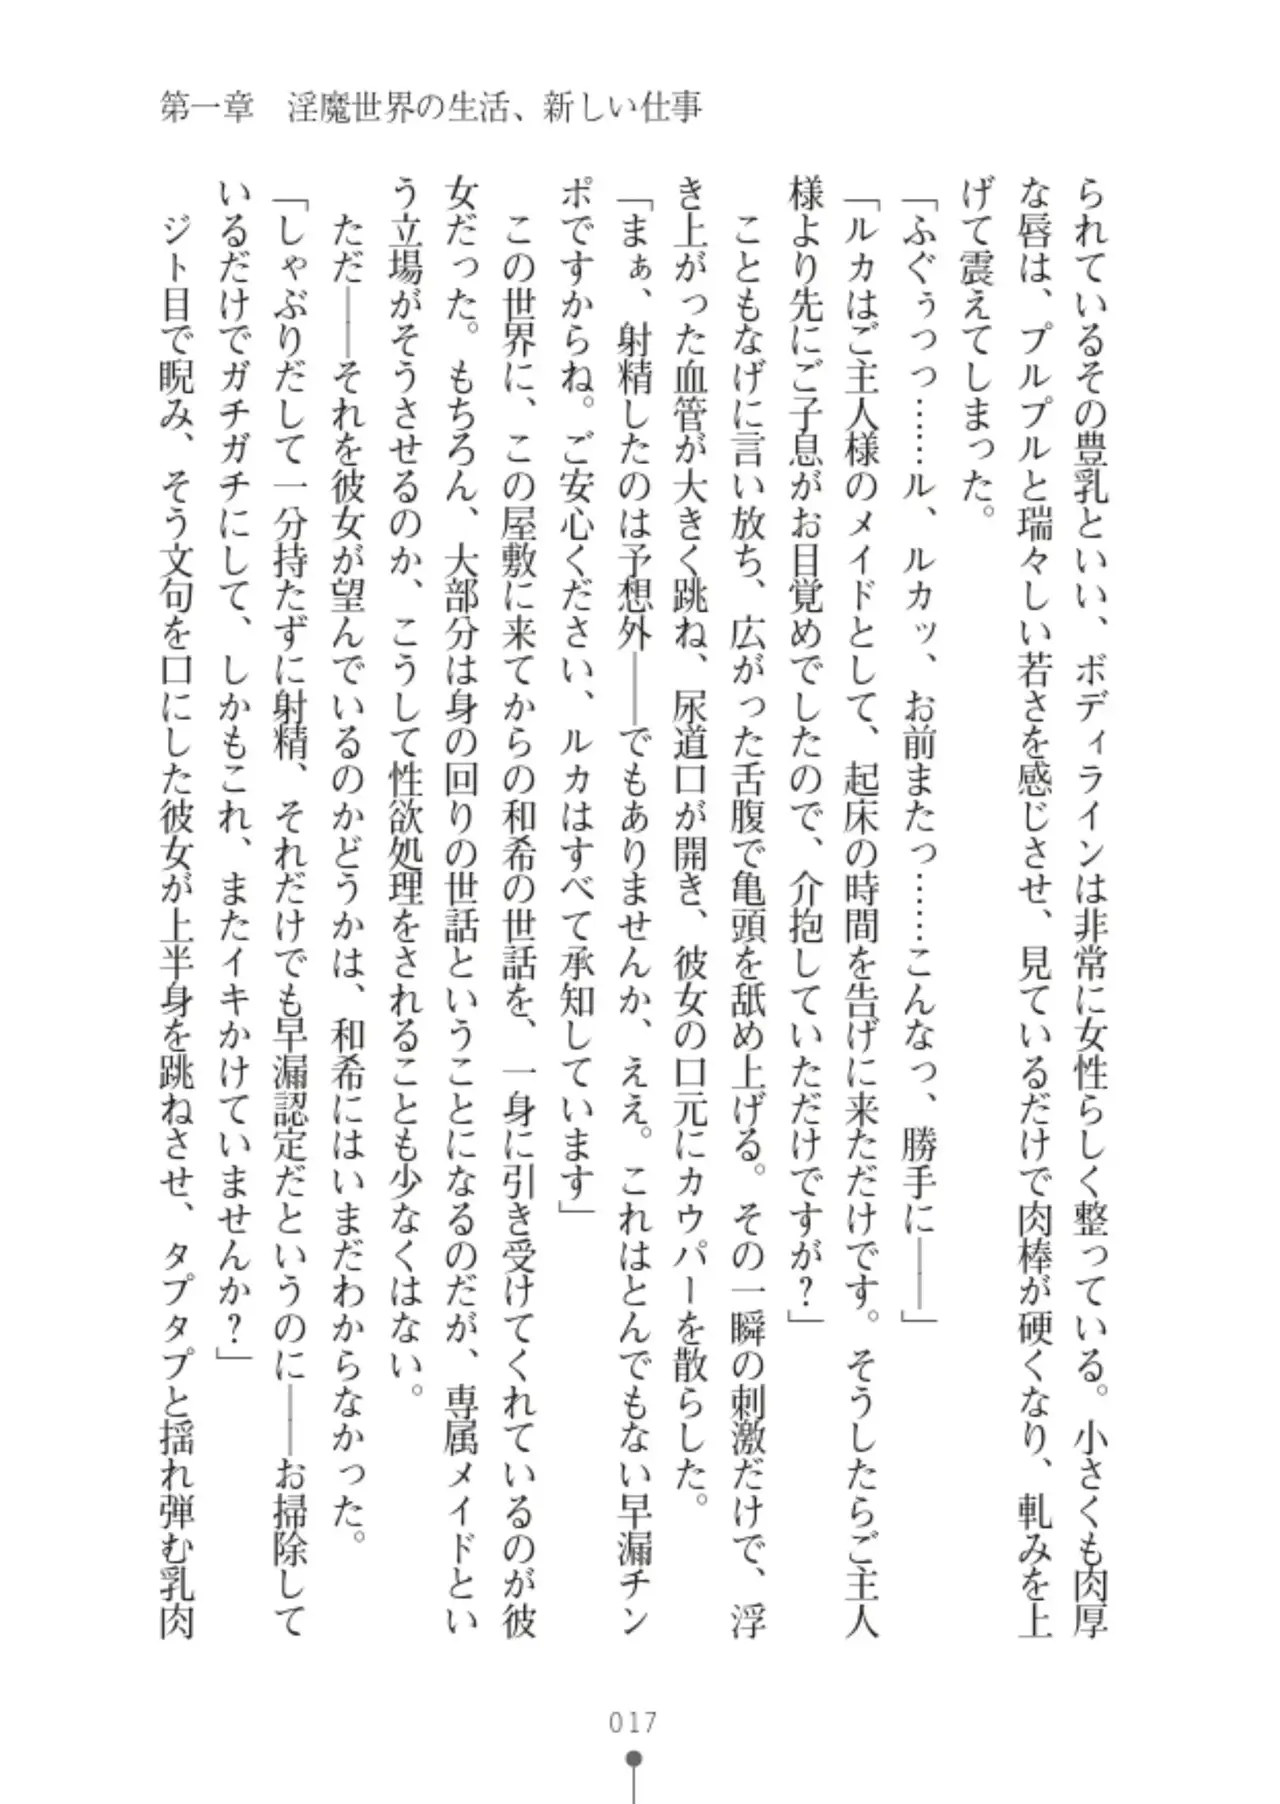 第一章　淫魔世界の生活、新しい仕事
られているその豊乳といい、ボディラインは非常に女性らしく整っている。小さくも肉厚
な唇は、プルプルと瑞々しい若さを感じさせ、見ているだけで肉棒が硬くなり、軋みを上
げて震えてしまった。
「ふぐぅっっ……ル、ルカッ、お前またっ……こんなっ、勝手に――」
「ルカはご主人様のメイドとして、起床の時間を告げに来ただけです。そうしたらご主人
様より先にご子息がお目覚めでしたので、介抱していただけですが？」
こともなげに言い放ち、広がった舌腹で亀頭を舐め上げる。その一瞬の刺激だけで、浮
き上がった血管が大きく跳ね、尿道口が開き、彼女の口元にカウパーを散らした。
「まぁ、射精したのは予想外――でもありませんか、ええ。これはとんでもない早漏チン
ポですからね。ご安心ください、ルカはすべて承知しています」
この世界に、この屋敷に来てからの和希の世話を、一身に引き受けてくれているのが彼
女だった。もちろん、大部分は身の回りの世話ということになるのだが、専属メイドとい
う立場がそうさせるのか、こうして性欲処理をされることも少なくはない。
ただ――それを彼女が望んでいるのかどうかは、和希にはいまだわからなかった。
「しゃぶりだして一分持たずに射精、それだけでも早漏認定だというのに――お掃除して
いるだけでガチガチにして、しかもこれ、またイキかけていませんか？」
ジト目で睨み、そう文句を口にした彼女が上半身を跳ねさせ、タプタプと揺れ弾む乳肉
017